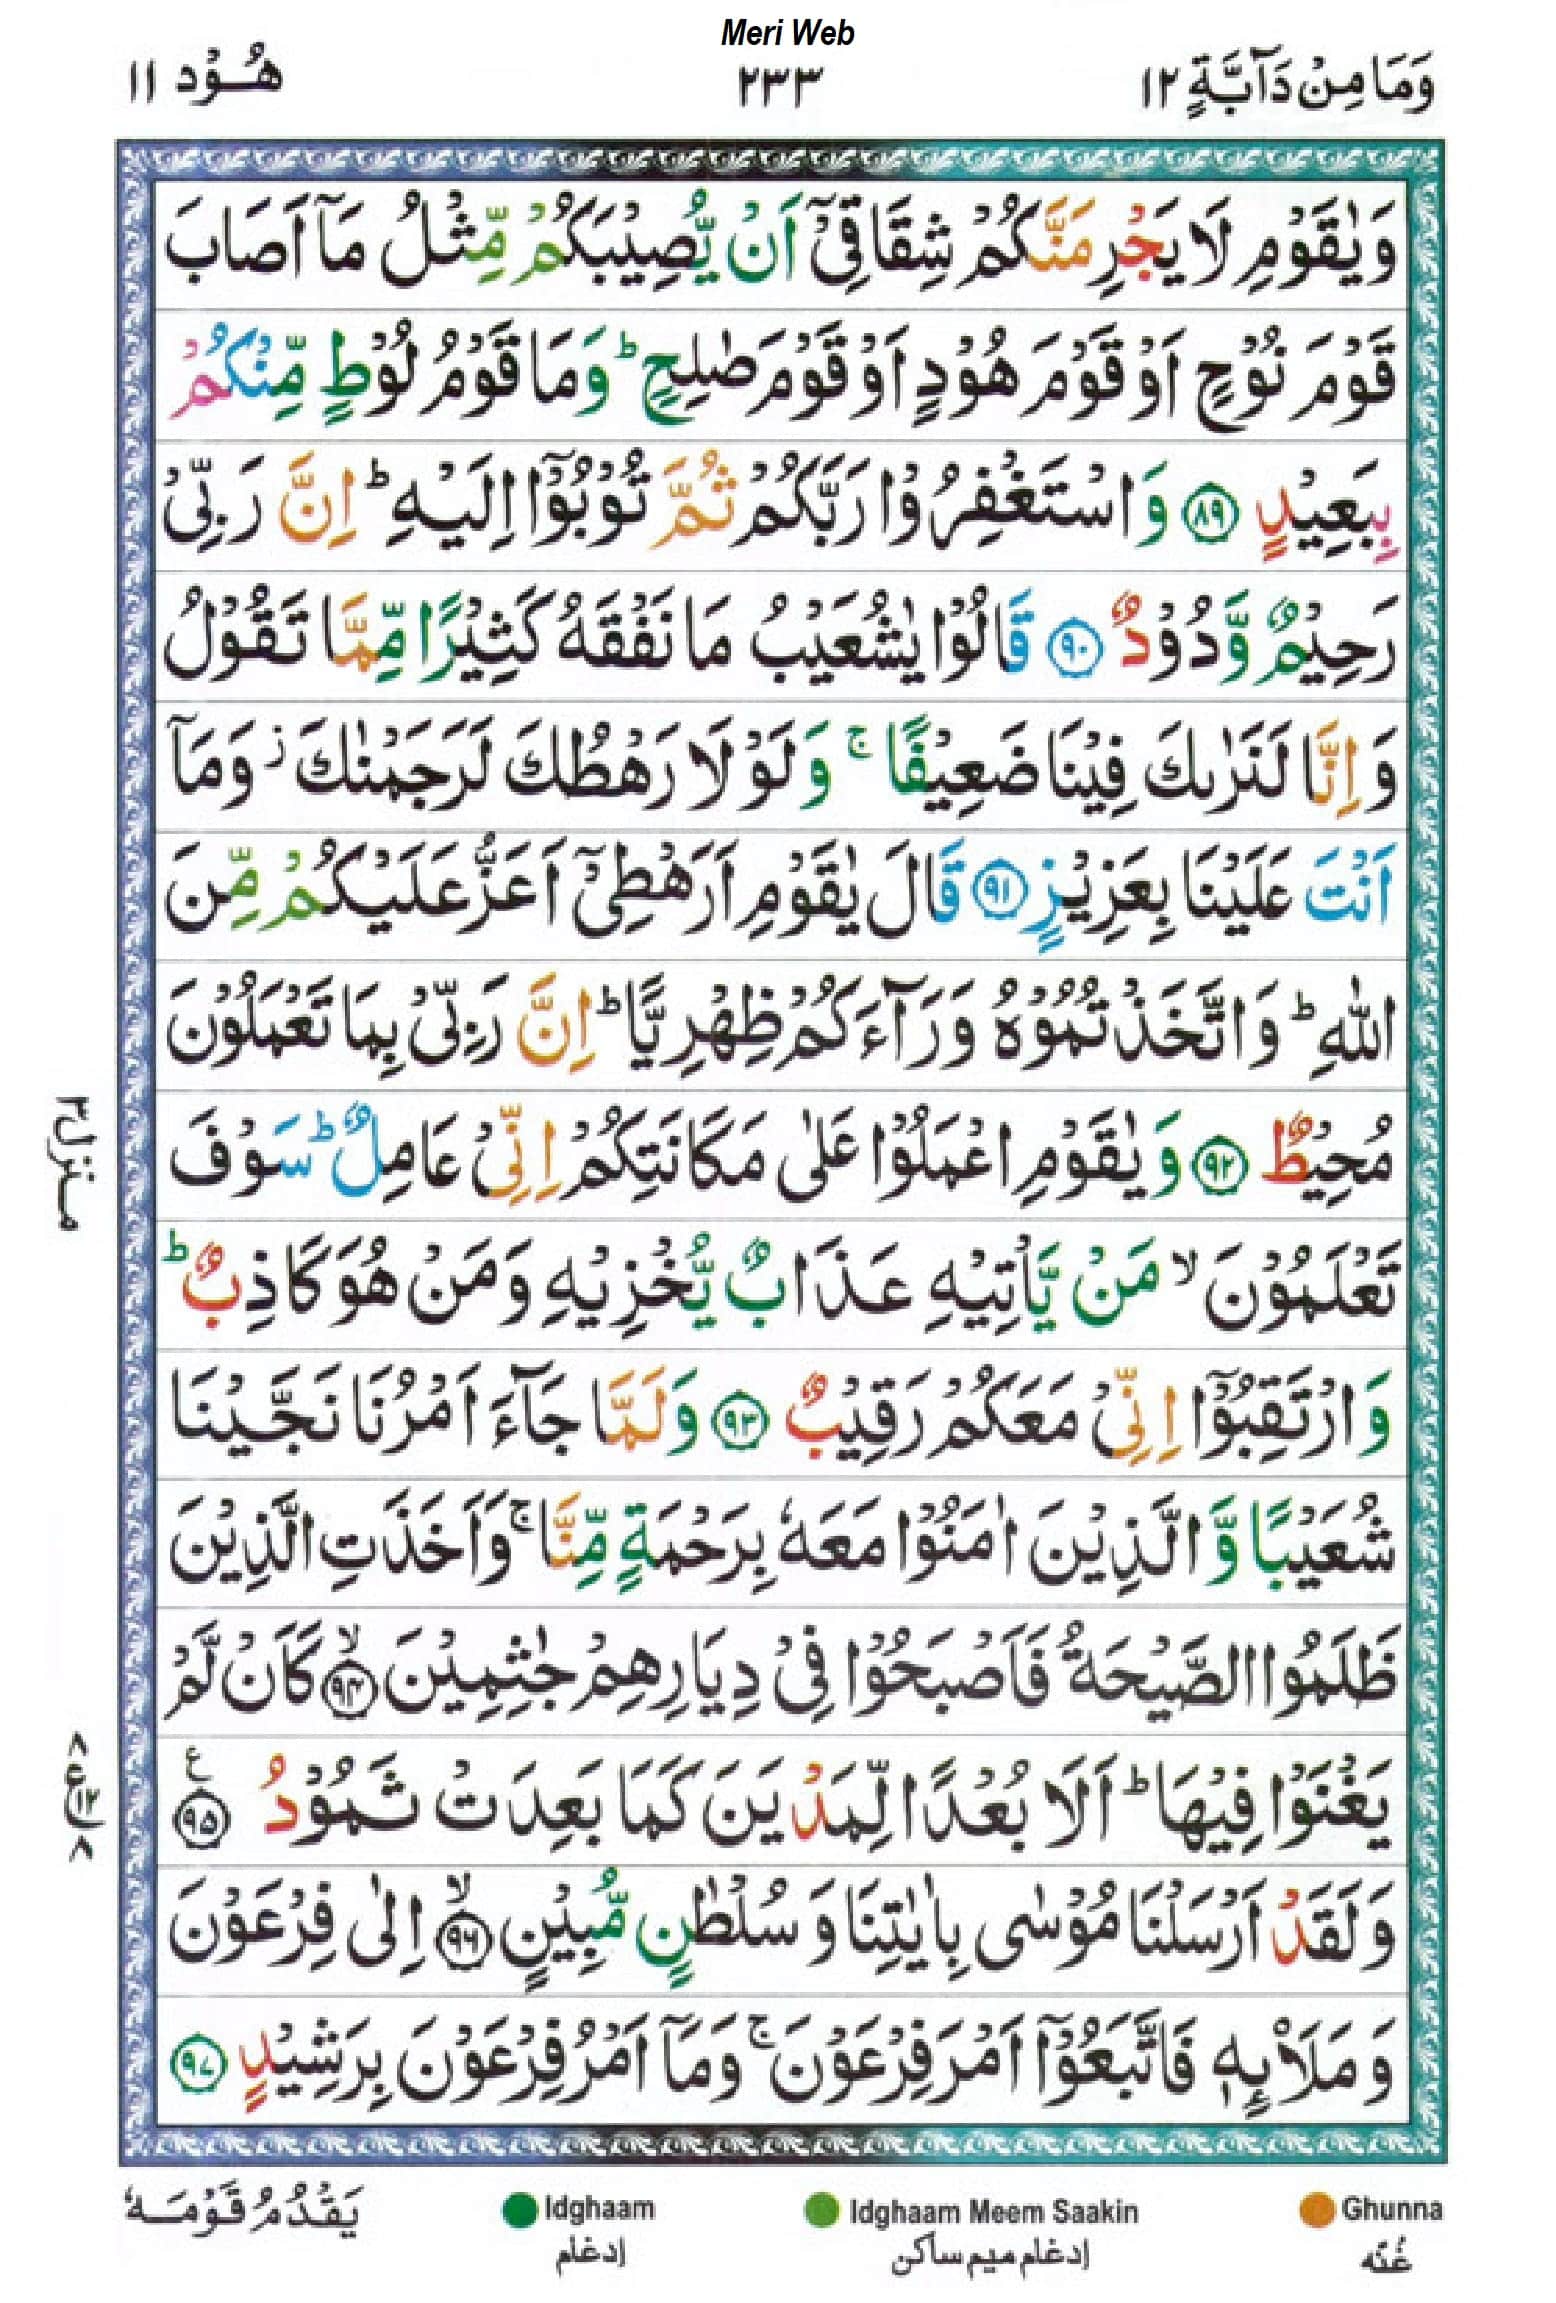 Meri Web
وَمَا مِنْ دَآبَّةٍ ١٢
٢٣٣
هُوْد ١١
وَيٰقَوْمِ لَا يَجْرِمَنَّكُمْ شِقَاقِيْٓ اَنْ يُّصِيْبَكُمْ مِّثْلُ مَآ اَصَابَ
قَوْمَ نُوْحٍ اَوْ قَوْمَ هُوْدٍ اَوْ قَوْمَ صٰلِحٍ ؕ وَمَا قَوْمُ لُوْطٍ مِّنْكُمْ
بِبَعِيْدٍ ﴿٨٩﴾ وَاسْتَغْفِرُوْا رَبَّكُمْ ثُمَّ تُوْبُوْٓا اِلَيْهِ ؕ اِنَّ رَبِّيْ
رَحِيْمٌ وَّدُوْدٌ ﴿٩٠﴾ قَالُوْا يٰشُعَيْبُ مَا نَفْقَهُ كَثِيْرًا مِّمَّا تَقُوْلُ
وَاِنَّا لَنَرٰىكَ فِيْنَا ضَعِيْفًا ۚ وَلَوْلَا رَهْطُكَ لَرَجَمْنٰكَ ؗ وَمَآ
اَنْتَ عَلَيْنَا بِعَزِيْزٍ ﴿٩١﴾ قَالَ يٰقَوْمِ اَرَهْطِيْٓ اَعَزُّ عَلَيْكُمْ مِّنَ
اللّٰهِ ؕ وَاتَّخَذْتُمُوْهُ وَرَآءَكُمْ ظِهْرِيًّا ؕ اِنَّ رَبِّيْ بِمَا تَعْمَلُوْنَ
مُحِيْطٌ ﴿٩٢﴾ وَيٰقَوْمِ اعْمَلُوْا عَلٰى مَكَانَتِكُمْ اِنِّيْ عَامِلٌ ؕ سَوْفَ
تَعْلَمُوْنَ ۙ مَنْ يَّاْتِيْهِ عَذَابٌ يُّخْزِيْهِ وَمَنْ هُوَ كَاذِبٌ ؕ
وَارْتَقِبُوْٓا اِنِّيْ مَعَكُمْ رَقِيْبٌ ﴿٩٣﴾ وَلَمَّا جَآءَ اَمْرُنَا نَجَّيْنَا
شُعَيْبًا وَّالَّذِيْنَ اٰمَنُوْا مَعَهٗ بِرَحْمَةٍ مِّنَّا ۚ وَاَخَذَتِ الَّذِيْنَ
ظَلَمُوا الصَّيْحَةُ فَاَصْبَحُوْا فِيْ دِيَارِهِمْ جٰثِمِيْنَ ۙ﴿٩٤﴾ كَاَنْ لَّمْ
يَغْنَوْا فِيْهَا ؕ اَلَا بُعْدًا لِّمَدْيَنَ كَمَا بَعِدَتْ ثَمُوْدُ ﴿٩٥﴾ ع
وَلَقَدْ اَرْسَلْنَا مُوْسٰى بِاٰيٰتِنَا وَسُلْطٰنٍ مُّبِيْنٍ ۙ﴿٩٦﴾ اِلٰى فِرْعَوْنَ
وَمَلَا۟ئِهٖ فَاتَّبَعُوْٓا اَمْرَ فِرْعَوْنَ ۚ وَمَآ اَمْرُ فِرْعَوْنَ بِرَشِيْدٍ ﴿٩٧﴾
منزل ٣
٨ ع ١٢ ٨
يَقْدُمُ قَوْمَهٗ
Idghaam
إدغام
Idghaam Meem Saakin
إدغام ميم ساكن
Ghunna
غُنّه